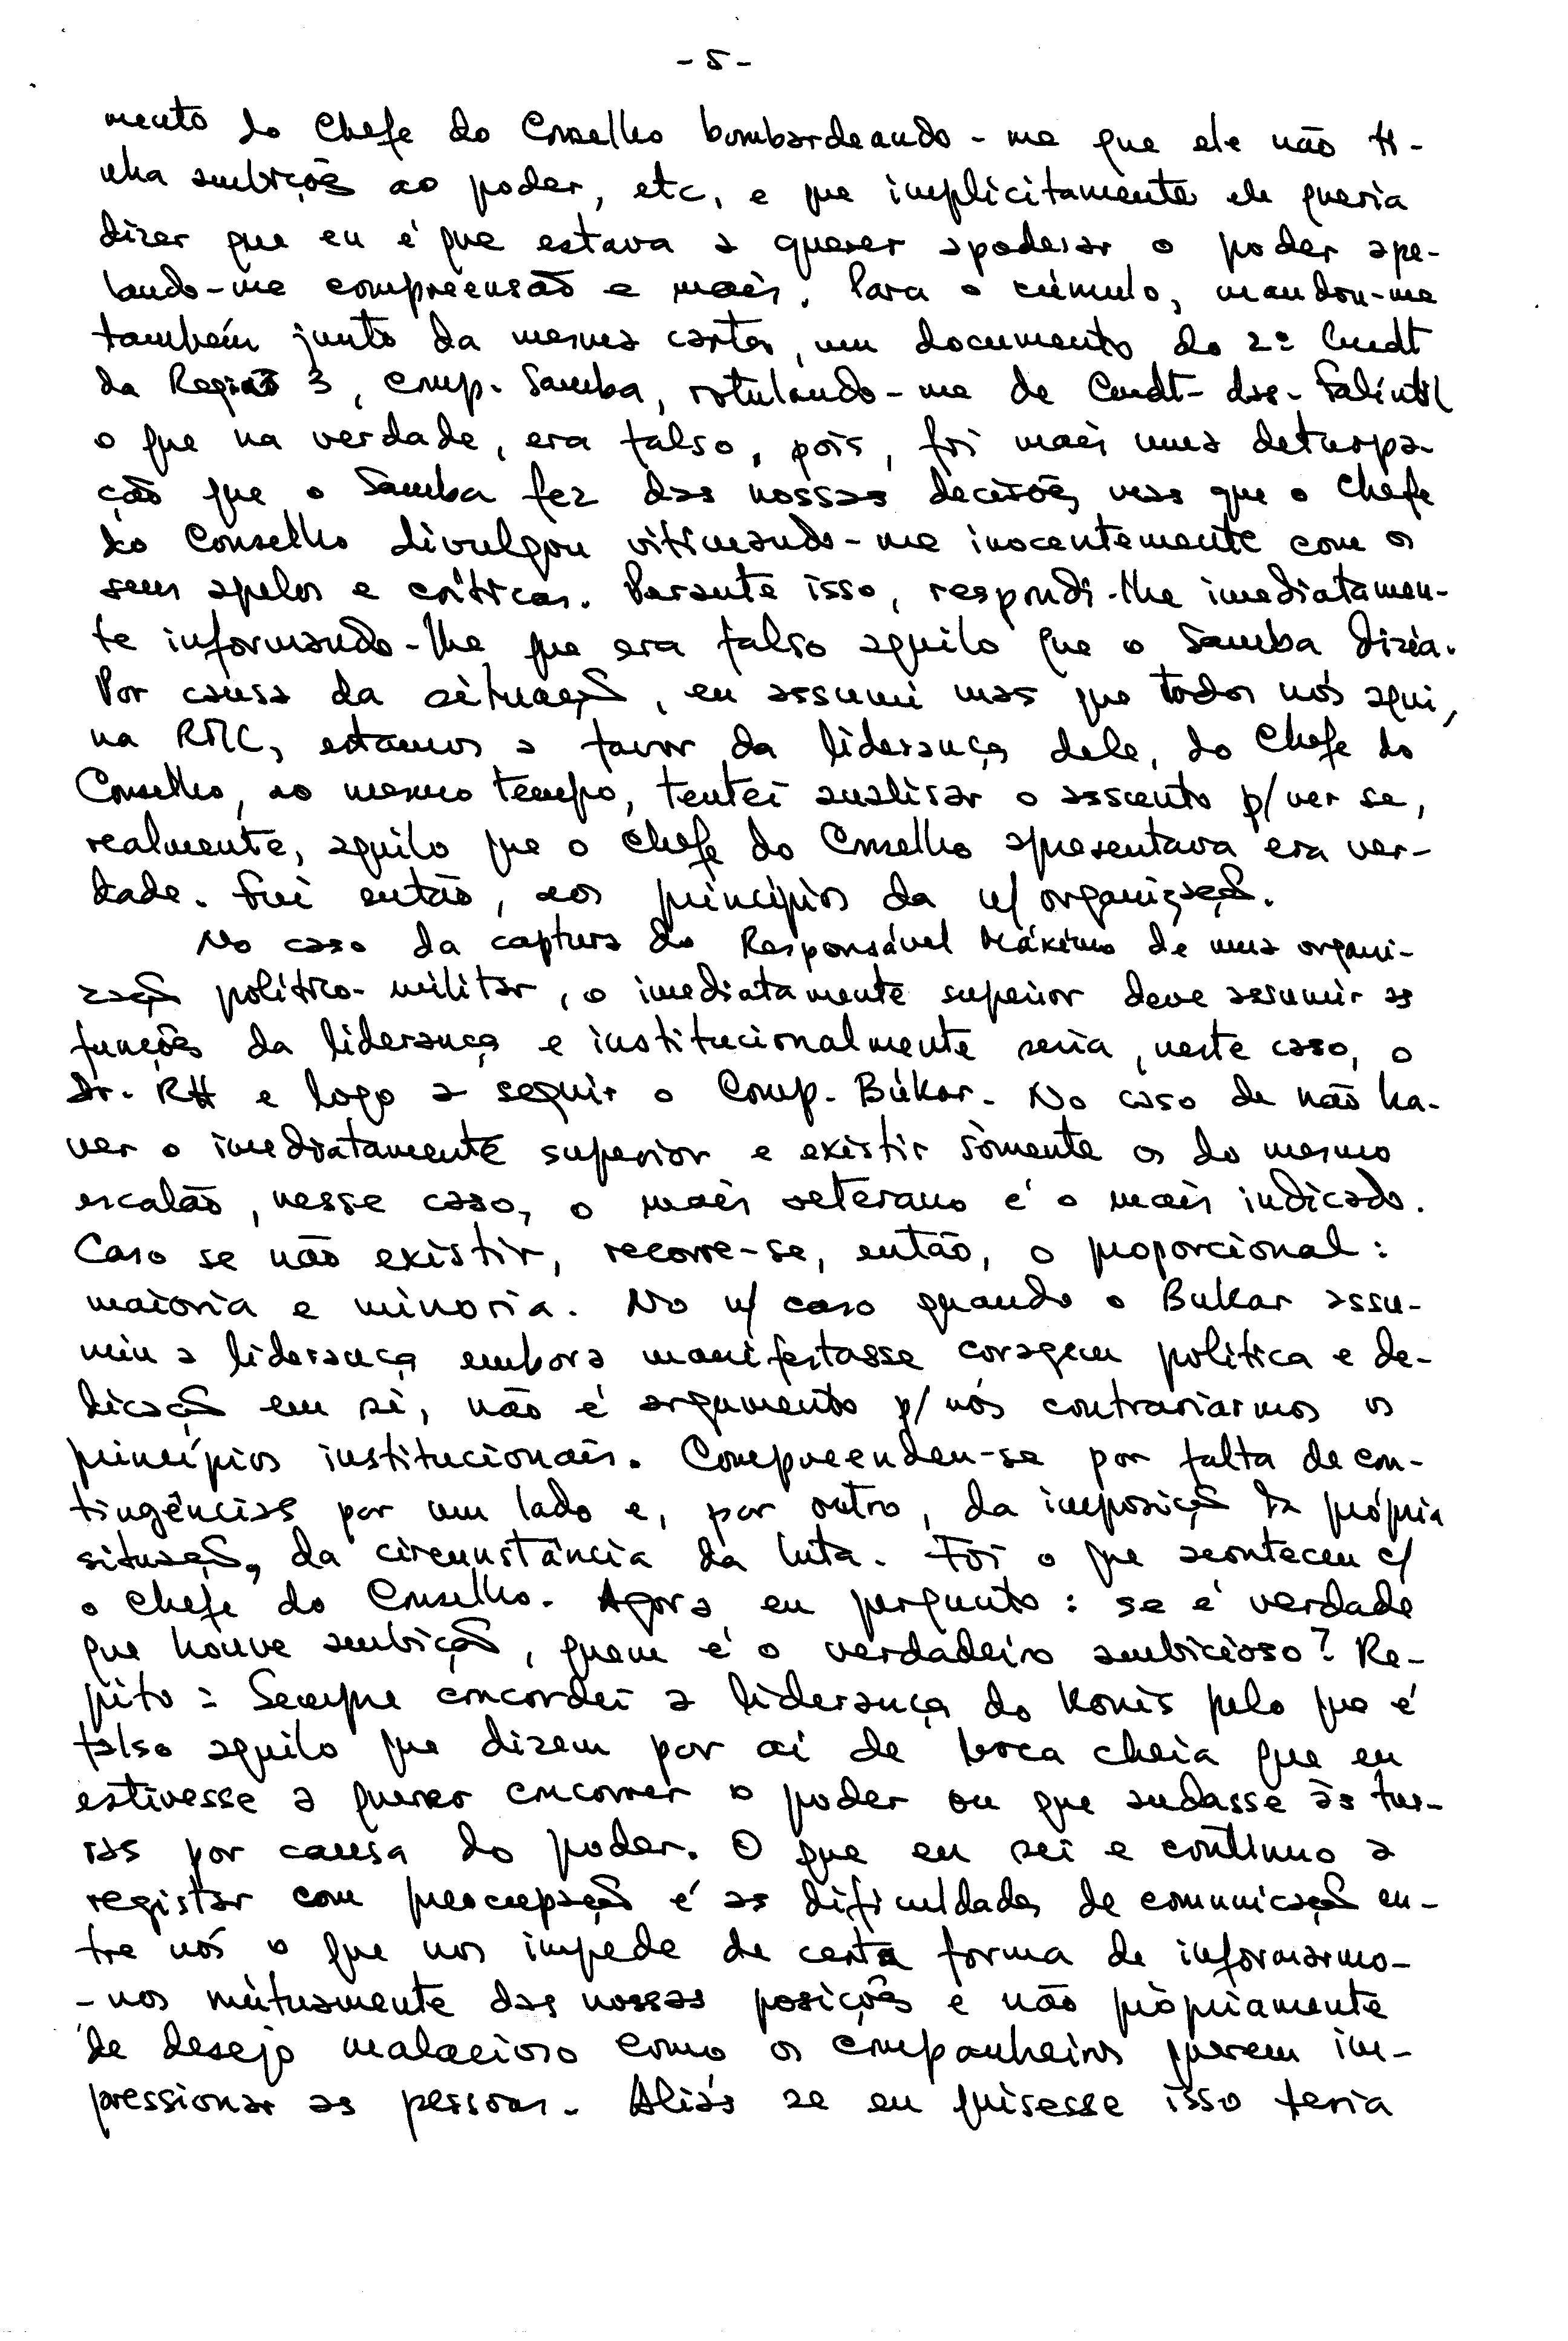 - 5 -
mento do Chefe do Conselho bombardeando-me que ele não ti-
nha ambições ao poder, etc, e que implicitamente ele queria
dizer que eu é que estava a querer apoderar o poder ape-
lando-me compreensão e mais. Para o cúmulo, mandou-me
também junto da mesma carta, um documento do 2º Cmdt
da Região 3, comp. Samba, rotulando-me de Cmdt- das- Falintil
o que na verdade, era falso, pois, foi mais uma deturpa-
ção que o Samba fez das nossas decisões, mas que o Chefe
do Conselho divulgou vitimando-me inocentemente com os
seus apelos e críticas. Perante isso, respondi-lhe imediatamen-
te informando-lhe que era falso aquilo que o Samba dizia.
Por causa da situação, eu assumi mas que todos nós aqui,
na RMC, estamos a favor da liderança dele, do Chefe do
Conselho, ao mesmo tempo, tentei analisar o assunto p/ver se,
realmente, aquilo que o Chefe do Conselho apresentava era ver-
dade. Fui então, aos princípios da n/ organização.
No caso da captura do Responsável Máximo de uma organi-
zação político-militar, o imediatamente superior deve assumir as
funções da liderança e institucionalmente seria, neste caso, o
Dr. RH e logo a seguir o Comp. Búkar. No caso de não ha-
ver o imediatamente superior e existir sòmente os do mesmo
escalão, nesse caso, o mais veterano é o mais indicado.
Caso se não existir, recorre-se, então, o proporcional:
maioria e minoria. No n/ caso quando o Bukar assu-
miu a liderança embora manifestasse coragem política e de-
dicação em si, não é argumento p/ nós contrariarmos os
princípios institucionais. Compreendeu-se por falta de con-
tingências por um lado e, por outro, da imposição da própria
situação, da circunstância da luta. Foi o que aconteceu c/
o Chefe do Conselho. Agora eu pergunto: se é verdade
que houve ambição, quem é o verdadeiro ambicioso? Re-
pito: Sempre concordei a liderança do Konis pelo que é
falso aquilo que dizem por aí de boca cheia que eu
estivesse a querer concorrer o poder ou que andasse às tur-
ras por causa do poder. O que eu sei e continuo a
registar com preocupação é as dificuldades de comunicação en-
tre nós o que nos impede de certa forma de informarmo-
-nos mùtuamente das nossas posições e não pròpriamente
de desejo malacioso como os companheiros querem im-
pressionar as pessoas. Aliás se eu quisesse isso teria